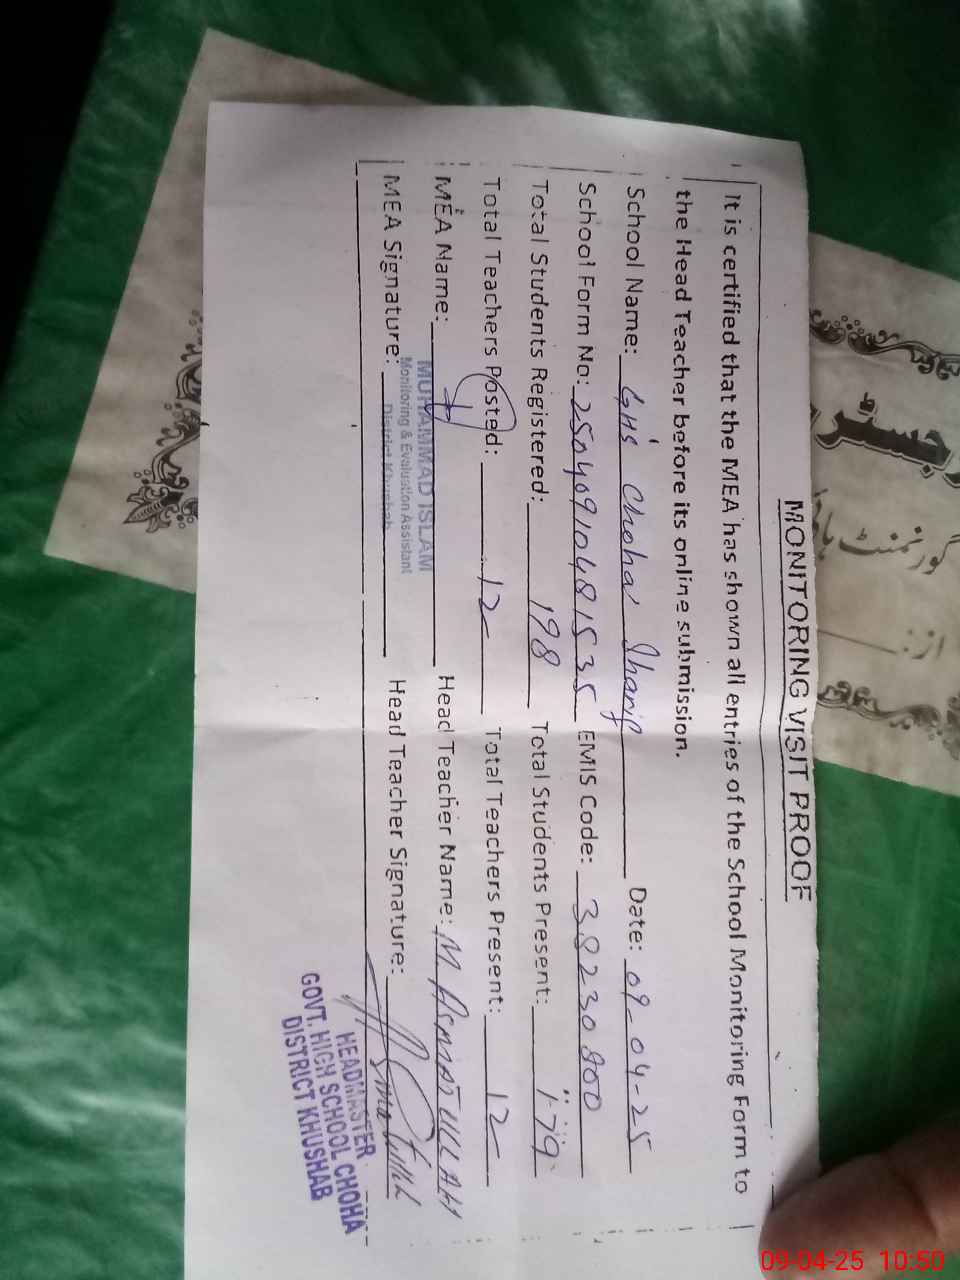 MONITORING VISIT PROOF
It is certified that the MEA has shown all entries of the School Monitoring Form to
the Head Teacher before its online submission.
School Name: GHS Choha Sharif Date: 09-04-25
School Form No: 25040910481535 EMIS Code: 38230800
Total Students Registered: 198 Total Students Present: 179
Total Teachers Posted: 12 Total Teachers Present: 12
MEA Name: MUHAMMAD ISLAM Head Teacher Name: M ASMATULLAH
Monitoring & Evaluation Assistant
District Khushab
MEA Signature: Head Teacher Signature:
HEADMASTER
GOVT. HIGH SCHOOL CHOHA
DISTRICT KHUSHAB
گورنمنٹ
از:
09-04-25 10:50